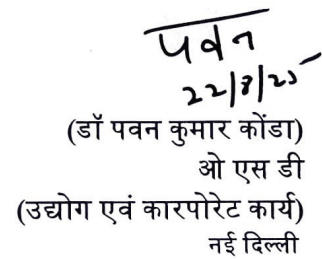 पवन
22/8/25
(डॉ पवन कुमार कोंडा)
ओ एस डी
(उद्योग एवं कारपोरेट कार्य)
नई दिल्ली